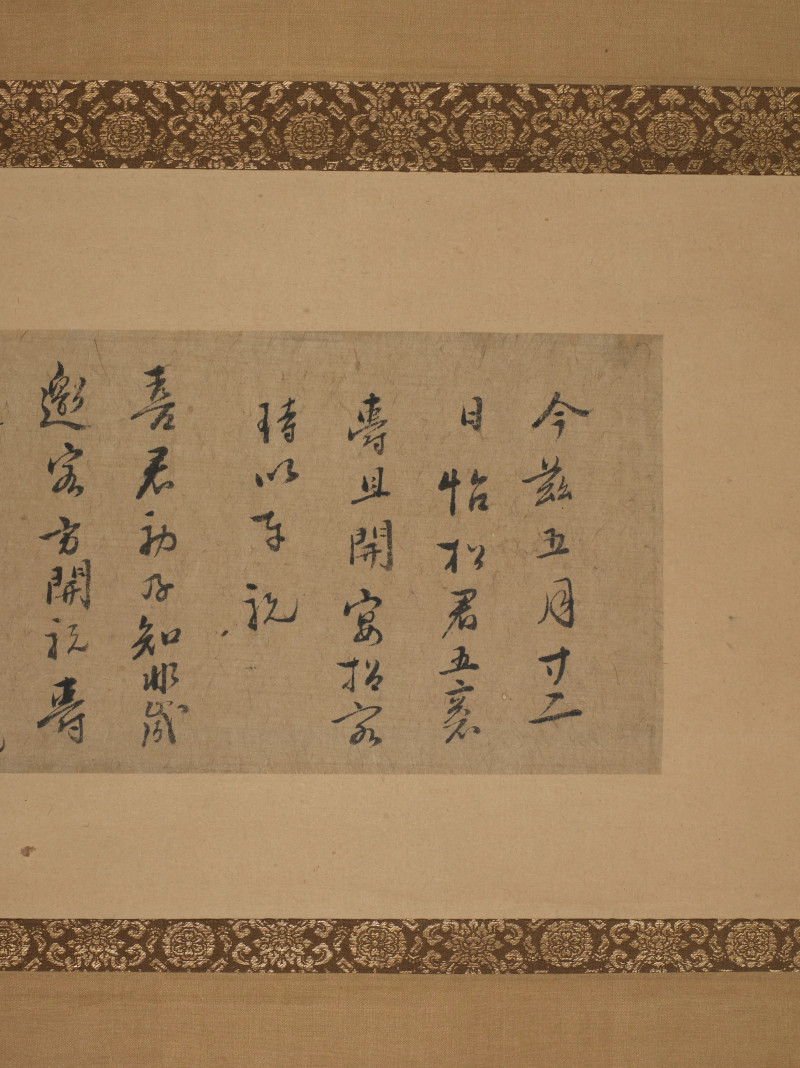 今茲五月廿二
日怡松君五袠
壽且開宴招客
詩以祝
喜君初及知非歳
邀客方開祝壽